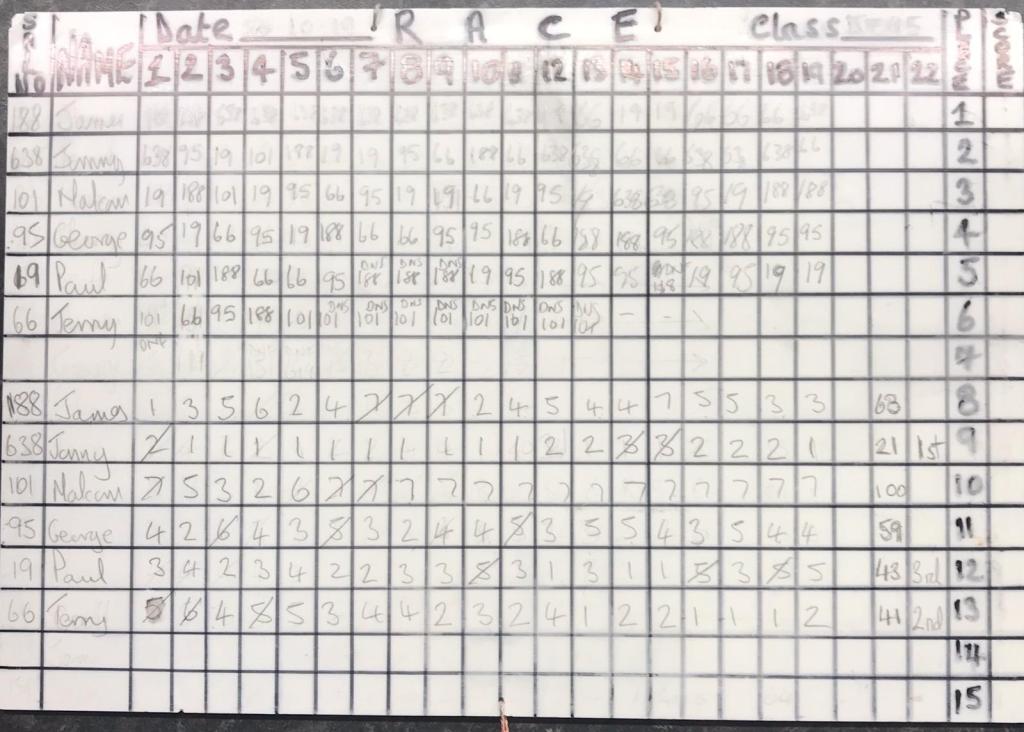 Sail No NAME Date R A C E ! Class Place Score
1 2 3 4 5 6 7 8 9 10 11 12 13 14 15 16 17 18 19 20 21 22
188 James 66 19 19 66 66 66 638 1
638 Jenny 638 95 19 101 188 19 19 95 66 188 66 638 638 66 66 638 638 66 2
101 Malcom 19 188 101 19 95 66 95 19 19 66 19 95 19 638 638 95 19 188 188 3
95 George 95 19 66 95 19 188 66 66 95 95 188 66 188 188 95 188 188 95 95 4
19 Paul 66 101 188 66 66 95 DNS 188 DNS 188 DNS 188 19 95 188 95 95 DNS 188 19 95 19 19 5
66 Terry 101 66 95 188 101 DNS 101 DNS 101 DNS 101 DNS 101 DNS 101 DNS 101 DNS 101 DNS 101 - - 6
7
188 James 1 3 5 6 2 4 7 7 7 2 4 5 4 4 7 5 5 3 3 68 8
638 Jenny 2 1 1 1 1 1 1 1 1 1 1 2 2 3 3 2 2 2 1 21 1st 9
101 Malcom 7 5 3 2 6 7 7 7 7 7 7 7 7 7 7 7 7 7 7 100 10
95 George 4 2 6 4 3 5 3 2 4 4 5 3 5 5 4 3 5 4 4 59 11
19 Paul 3 4 2 3 4 2 2 3 3 5 3 1 3 1 1 5 3 5 5 43 3rd 12
66 Terry 5 6 4 5 5 3 4 4 2 3 2 4 1 2 2 1 1 1 2 41 2nd 13
14
15